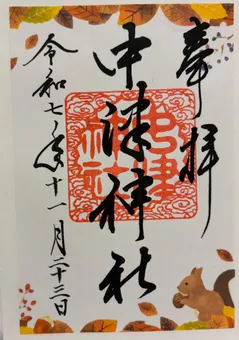 奉拝
中津神社
令和七年十一月二十三日